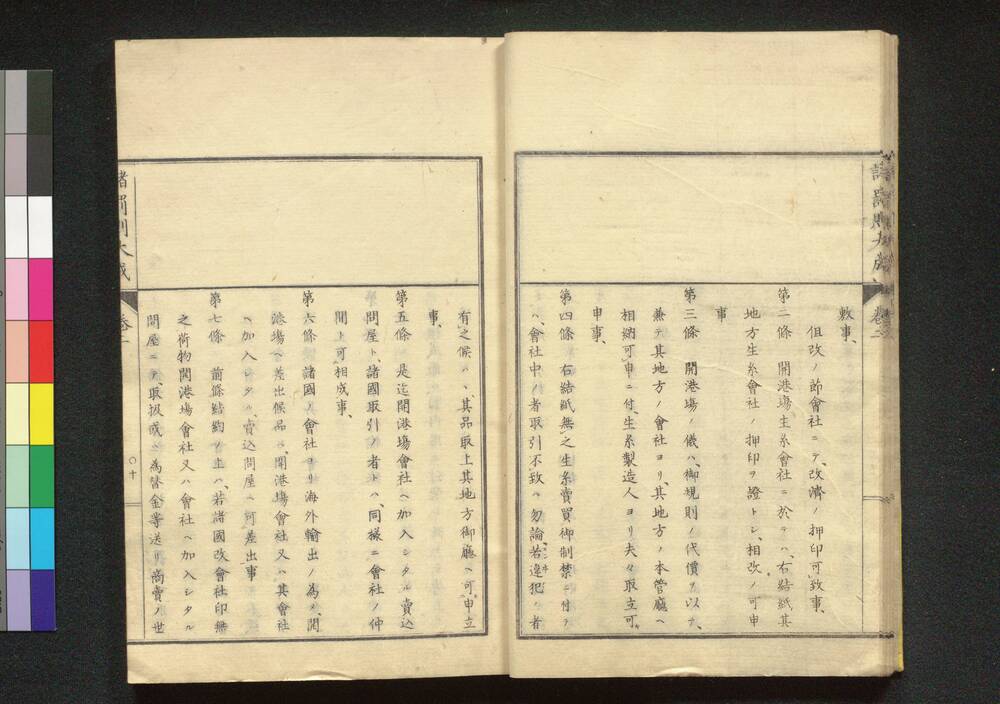 諸罰則大成 卷二
敷事、
但改ノ節會社ニテ、改濟ノ押印可致事、
第二條 開港塲生糸會社ニ於テハ、右結紙其
地方生糸會社ノ押印ヲ證トシ、相改ノ可申
事
第三條 開港塲ノ儀ハ、御規則ノ代價ヲ以テ、
兼テ其地方ノ會社ヨリ、其地方ノ本管廳ヘ
相納可申ニ付、生糸製造人ヨリ夫々取立可
申事、
第四條 右結紙無之生糸賣買御制禁ニ付テ
ハ、會社中ノ者取引不致ハ勿論、若違犯ノ者
有之候ハヽ、其品取上其地方御廳ヘ可申立
事、
第五條 是迄開港塲會社ヘ加入シタル賣込
問屋ト、諸國取引ノ者トハ、同樣ニ會社ノ仲
間ト可相成事、
第六條 諸國ノ會社ヨリ海外輸出ノ為メ、開
港塲ヘ差出候品ハ、開港塲會社又ハ其會社
ヘ加入シタル、賣込問屋ヘ可差出事
第七條 前條結約ノ上ハ、若諸國改會社印無
之荷物開港塲會社又ハ會社ヘ加入シタル
問屋ニテ、取扱或ハ為替金等送リ商賣ノ世
諸罰則大成 卷二 〇十